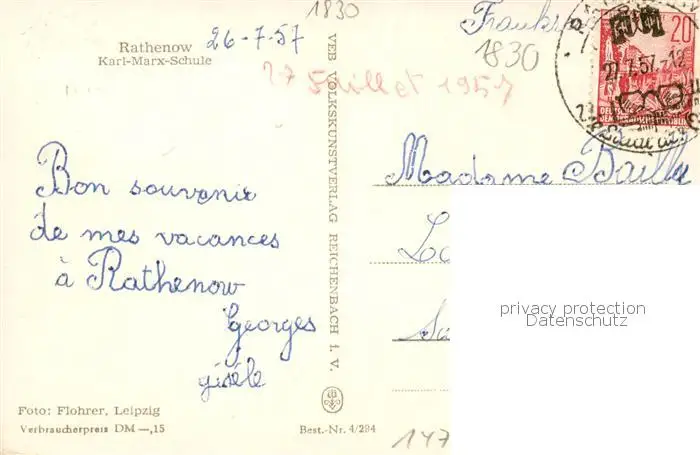 1830
Rathenow 26-7-57
Karl-Marx-Schule
27 Juillet 1957
1830
20
27.7.57.-12
DEUTSCHE
VEB VOLKSKUNSTVERLAG REICHENBACH i. V.
Madame
Bon souvenir
de mes vacances
à Rathenow
Georges
gisèle
privacy protection
Datenschutz
Foto: Flohrer, Leipzig
Verbraucherpreis DM —,15
Best.-Nr. 4/294
147